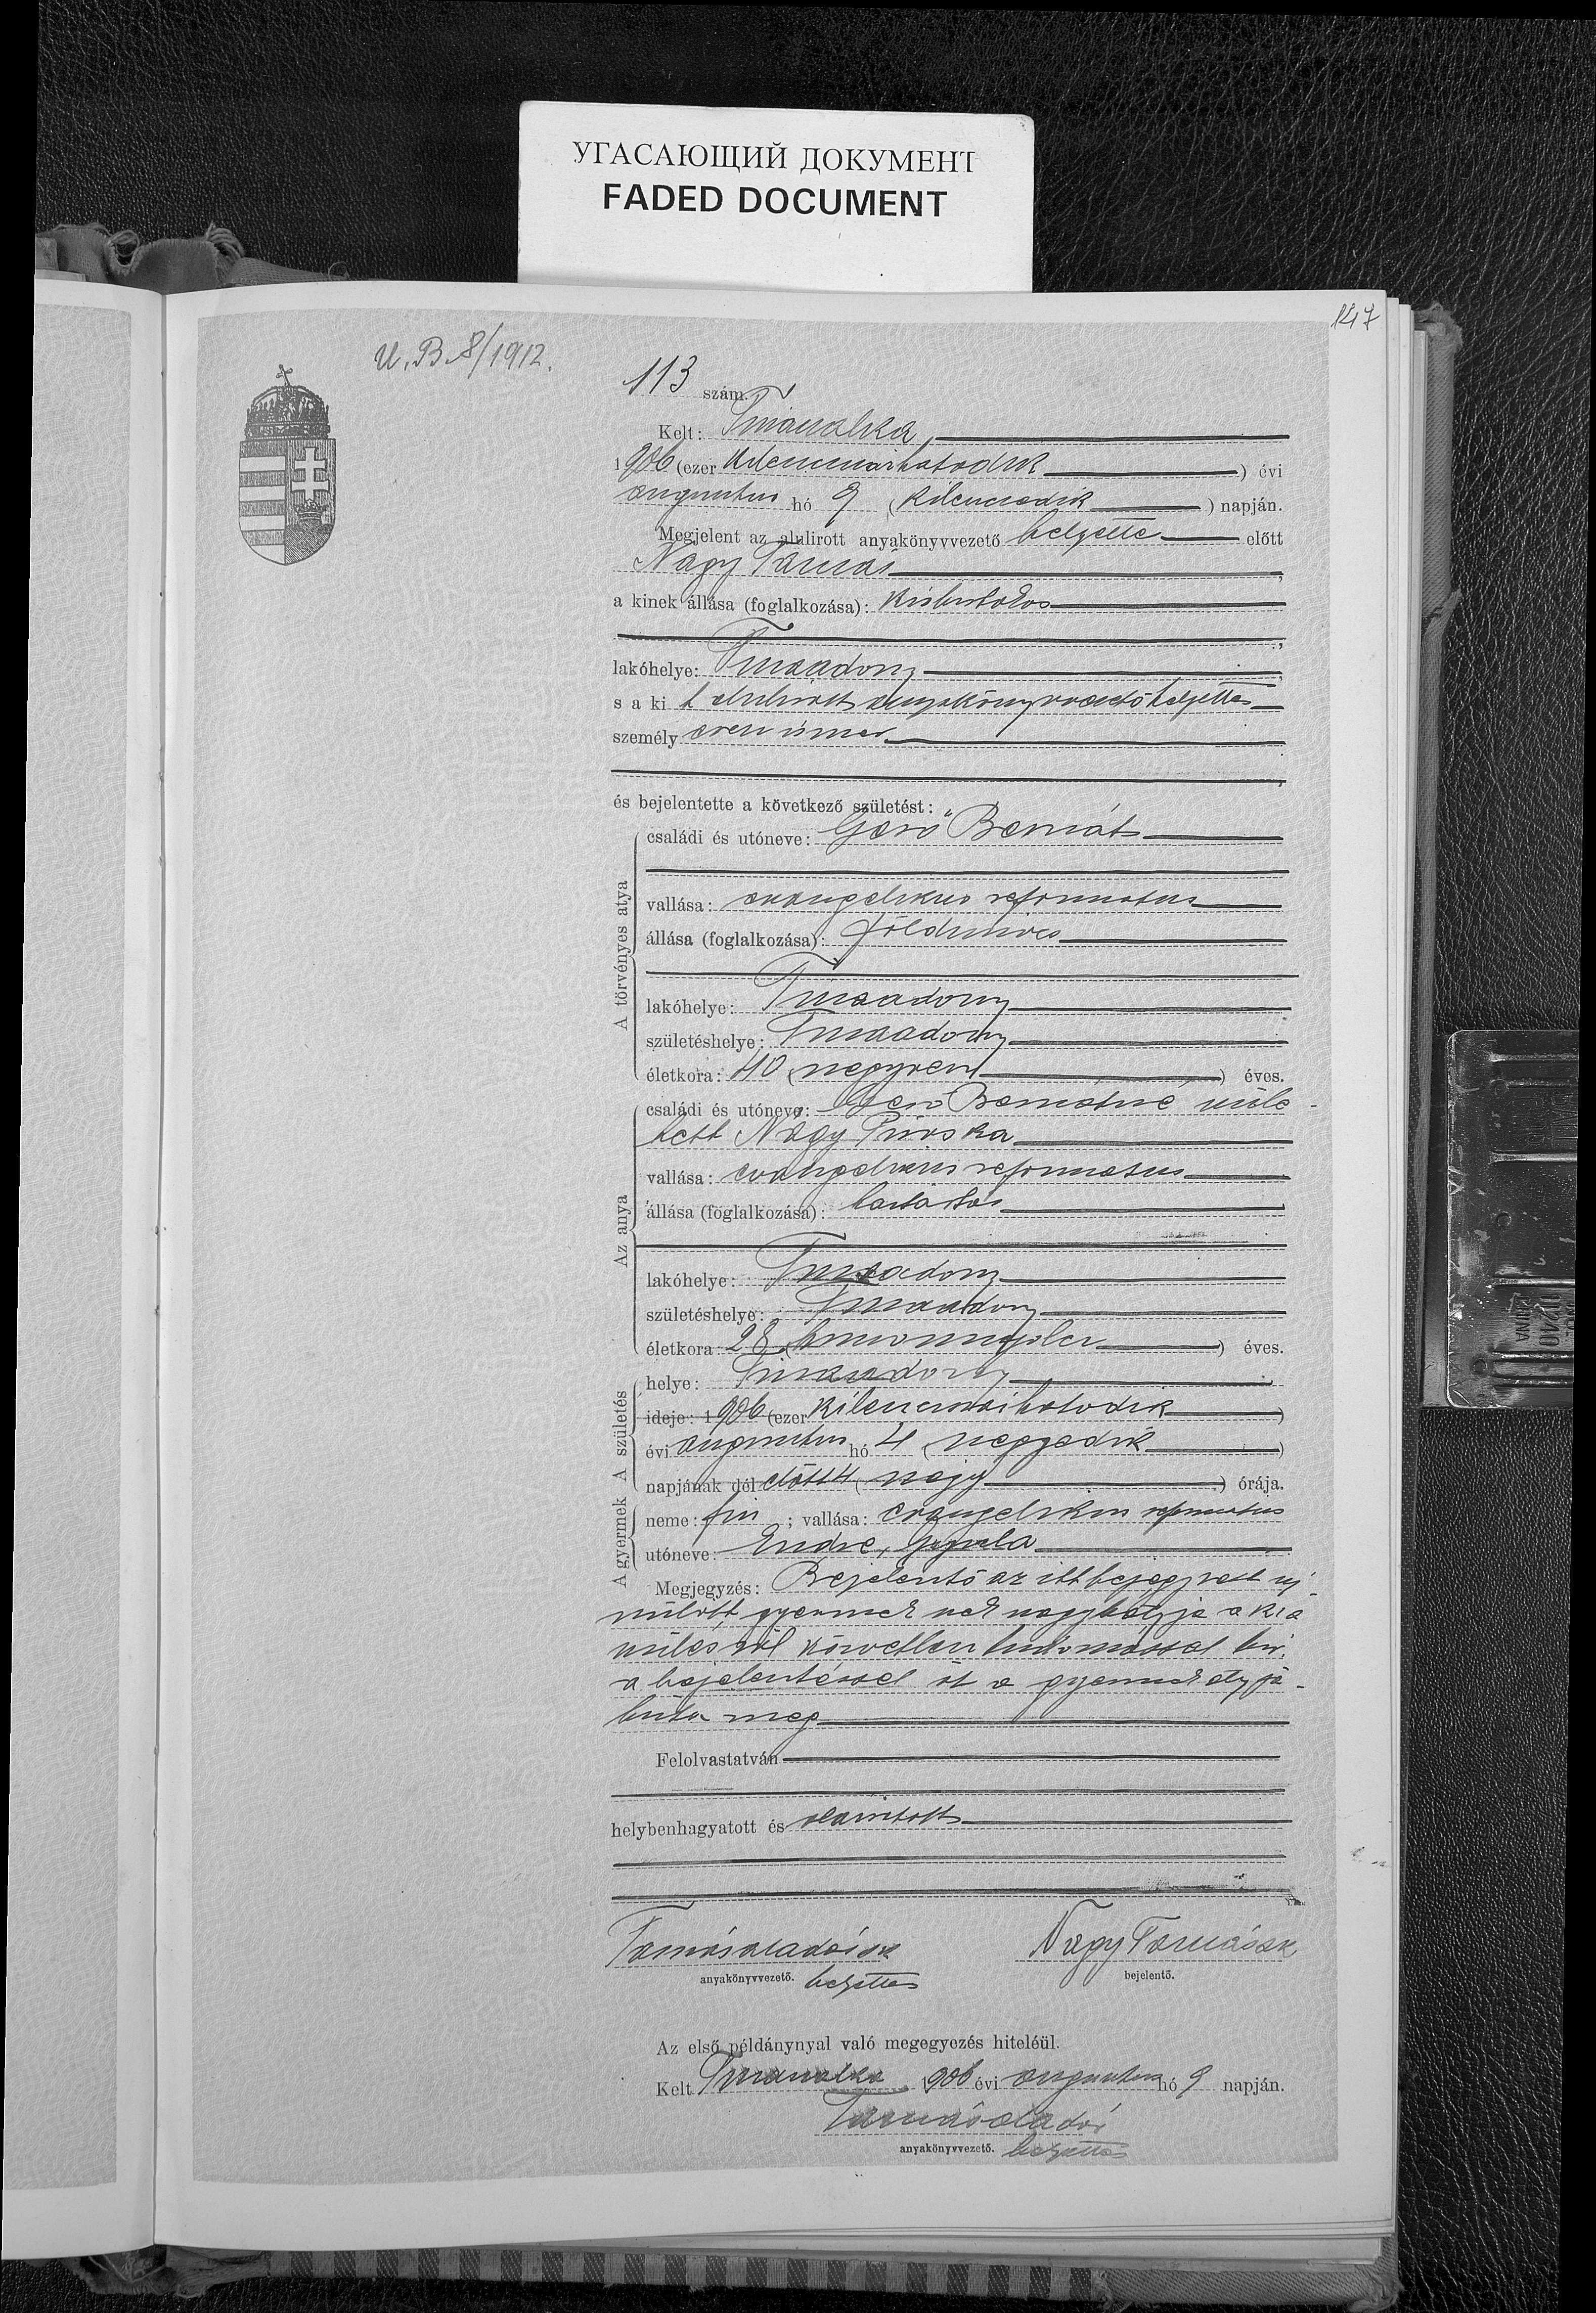 УГАСАЮЩИЙ ДОКУМЕНТ
FADED DOCUMENT
147
U. B. 8/1912.
113 szám.
Kelt: Tiszavalka,
1906 (ezer kilencszázhatodik) évi
augusztus hó 9 (kilencedik) napján.
Megjelent az alulirott anyakönyvvezető helyettes előtt
Nagy Tamás,
a kinek állása (foglalkozása): kisbirtokos
lakóhelye: Tiszaadony,
s a kit alulirott anyakönyvvezető helyettes
személyesen ismer
és bejelentette a következő születést:
A törvényes atya
családi és utóneve: Gerő Bernát
vallása: evangelikus reformatus
állása (foglalkozása): földmives
lakóhelye: Tiszaadony
születéshelye: Tiszaadony
életkora: 40 (negyven) éves.
Az anya
családi és utóneve: Gerő Bernátné szüle-
tett Nagy Piroska
vallása: evangelikus reformatus
állása (foglalkozása): háztartás
lakóhelye: Tiszaadony
születéshelye: Tiszaadony
életkora: 28 (huszonnyolc) éves.
A születés
helye: Tiszaadony
ideje: 1906 (ezer kilencszázhatodik)
évi augusztus hó 4 (negyedik)
napjának dél előtt 4 (négy) órája.
A gyermek
neme: fiu; vallása: evangelikus reformatus
utóneve: Endre, Gyula
Megjegyzés: Bejelentő az itt bejegyzett uj-
szülött gyermeknek nagybátyja a ki a
szülésről közvetlen tudomással bir,
a bejelentéssel őt a gyermek atyja
bizta meg
Felolvastatván
helybenhagyatott és aláiratott
Nagy Tamás sk
anyakönyvvezető. helyettes
bejelentő.
Az első példánynyal való megegyezés hiteléül.
Kelt Tiszavalka 1906 évi augusztus hó 9 napján.
anyakönyvvezető. helyettes